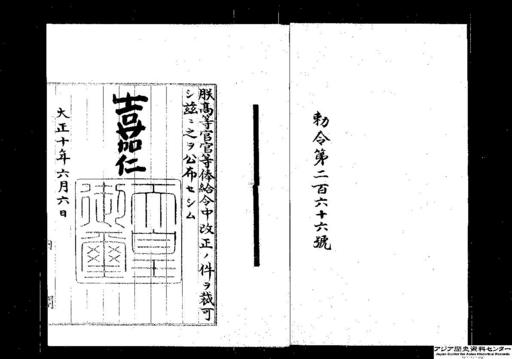 勅令第二百六十六號
朕高等官官等俸給令中改正ノ件ヲ裁可
シ茲ニ之ヲ公布セシム
嘉仁
天皇
御璽
大正十年六月六日
内
閣
アジア歴史資料センター
Japan Center for Asian Historical Records